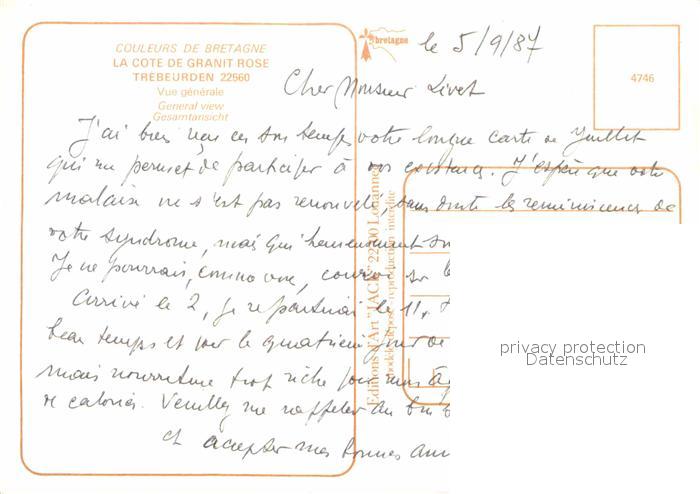 COULEURS DE BRETAGNE
LA COTE DE GRANIT ROSE
TRÉBEURDEN 22560
Vue générale
General view
Gesamtansicht
bretagne
le 5/9/87
4746
Cher Monsieur Livet
J'ai bien reçu en son temps votre longue carte de Juillet
qui me permet de participer à vos existences. J'espère que votre
malaise ne s'est pas renouvelé, sans doute les reminiscences de
votre syndrome, mais qui heureusement
Je ne pourrais, comme vous, courir sur
Arrivé le 2, je repartirai le 11.
beau temps et voir le quatrième jour de
mais nourriture trop riche pour mes
de calories. Veuillez me rappeler au bon
et accepter mes bonnes
Editions d'Art "JACK" 22200 Louannec
modèle déposé - reproduction interdite
privacy protection
Datenschutz